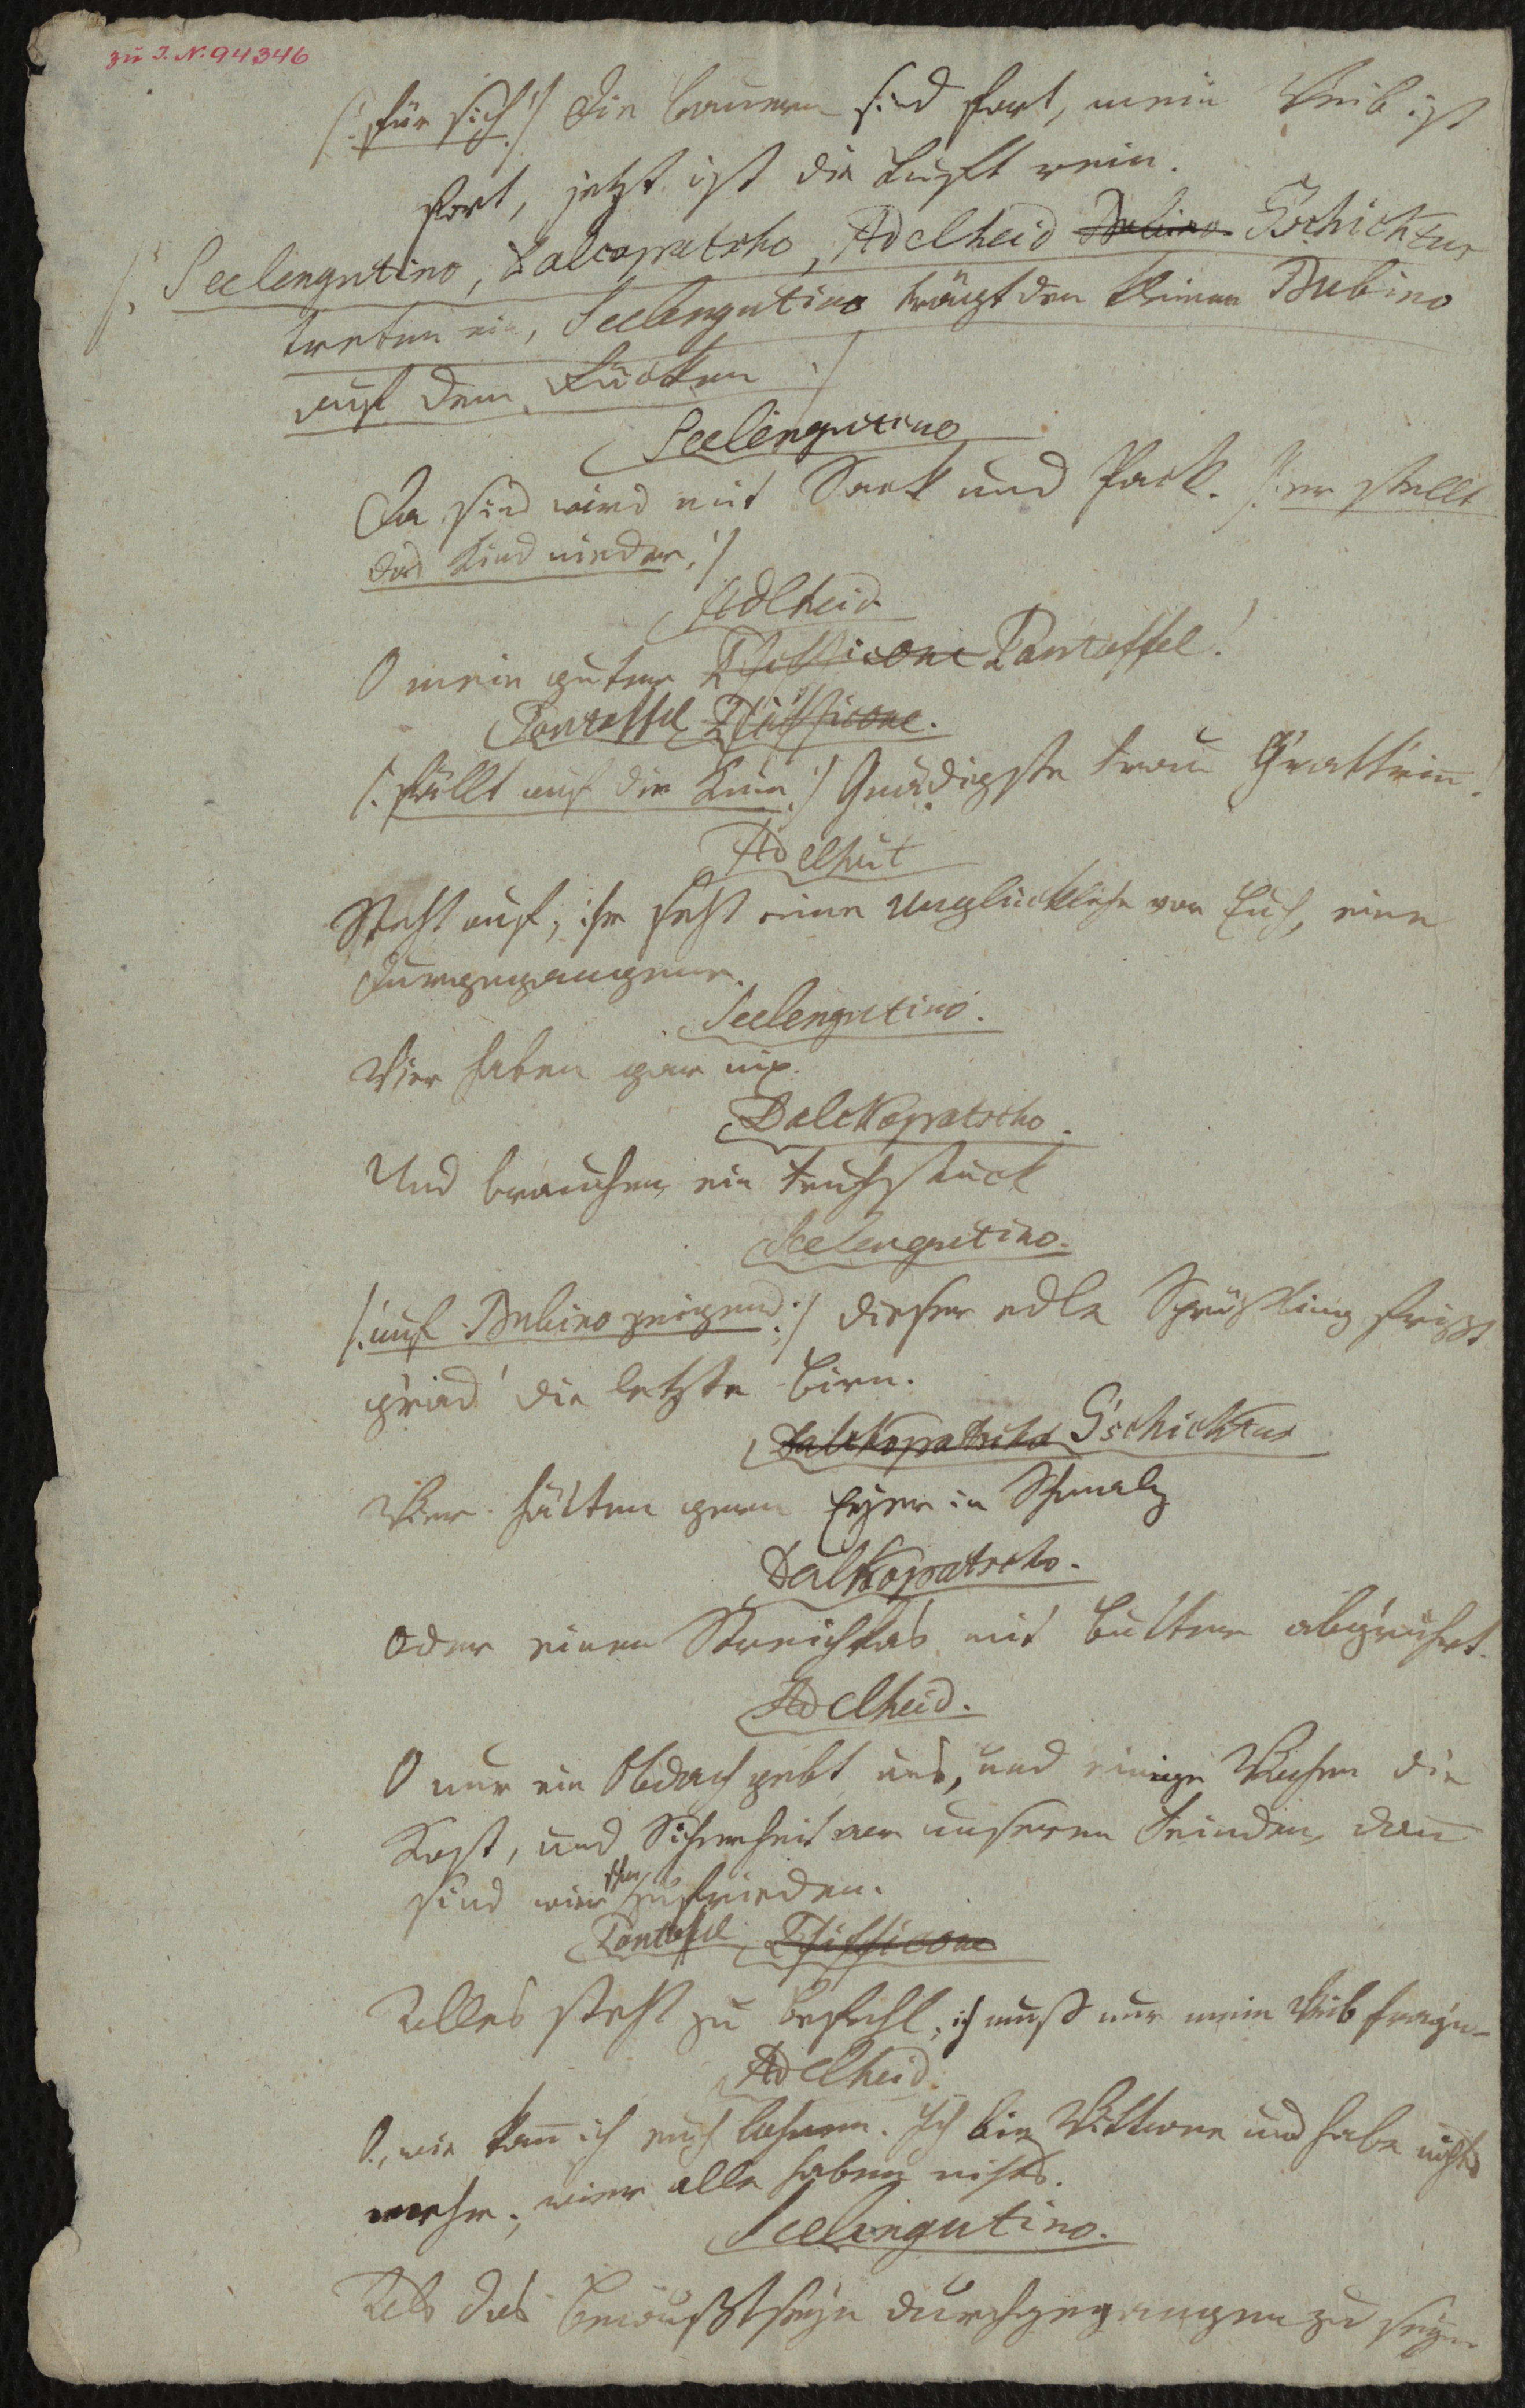 zu I. N. 94346
/: für sich :/ Die Bauern sind fort, mein Weib ist
fort, jetzt ist die Luft rein.
/: Seelengutino, Dalcopatscho, Adelheid Bubino Gschicktus
treten ein, Seelengutino trägt den kleinen Bubino
auf dem Rücken :/
Seelengutino
Da sind wird mit Sack und Pack. /: er stellt
das Kind nieder. :/
Adlheid
O mein guter Pantoffel!
Pantoffel
/: fällt auf die Knie :/ Gnädigste Frau Gräffinn!
Adelheit
Steht auf, ihr seht eine Unglückliche vor Euch, eine
durchgegangene.
Seelengutino.
Wier haben gar nix.
Dalckopatscho.
Und brauchen ein Fruhstuck
Seelengutino.
/: auf Bubino zeigend :/ dieser edle Sprößling frißt
g'rad' die letzte Birn.
Dalckopatscho G'schicktus
Wier hätten gern Eyer in Schmalz
Dalkopatscho.
oder einen Streichkas mit Butter abg'rührt.
Adelheid.
O nur ein Obdach gebt uns, und einige Wochen die
Kost, und Sicherheit vor unseren Feinden, dann
sind wier zufrieden.
Pantoffel
Alles steht zu Befehl, ich muß nur mein Weib frag'n
Adelheid.
O, wie kann ich euch lohnen. Ich bin Wittwe und habe nichts
mehr, wier alle haben nichts.
Seelengutino.
Als das Bewußtseyn durchgegangen zu seyn